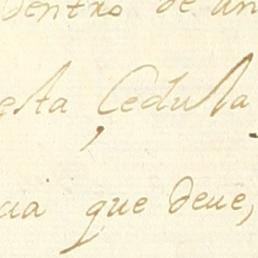 dentro de un
esta Cedula
que deue,